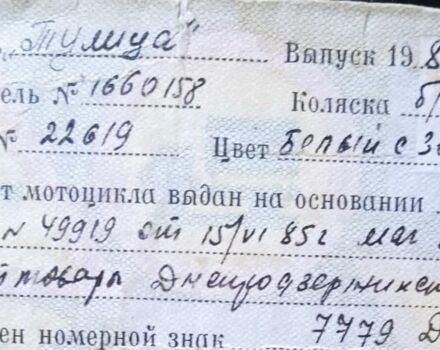 „Тулица" Выпуск 19 8
ель № 1660158 Коляска б/
№ 22619 Цвет Белый с З
т мотоцикла выдан на основании
N 49919 от 15/VI 85г маг
товары Днепродзержинск
ен номерной знак 7779 Д